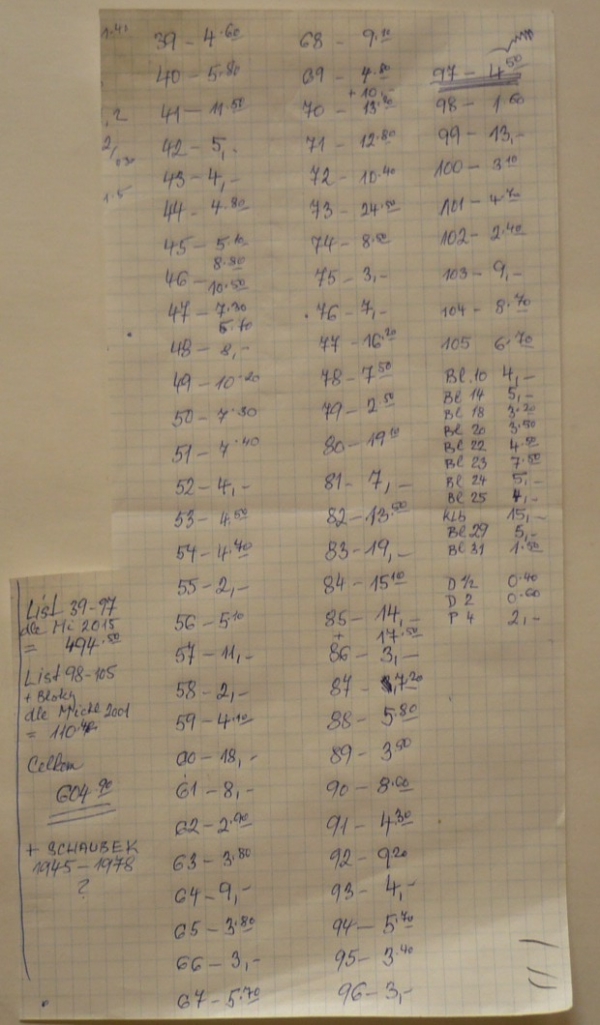 39 - 4.60
40 - 5.80
41 - 11.50
42 - 5,-
43 - 4,-
44 - 4.80
45 - 5.10
8.80
46 -
10.50
47 - 7.30
5.70
48 - 8,-
49 - 10.20
50 - 7.80
51 - 7.40
52 - 4,-
53 - 4.50
54 - 4.70
55 - 2,-
56 - 5.10
57 - 11,-
58 - 2,-
59 - 4.10
60 - 18,-
61 - 8,-
62 - 2.90
63 - 3.80
64 - 9,-
65 - 3.80
66 - 3,-
67 - 5.70
68 - 9.10
69 - 4.80
+ 10,-
70 - 13.80
71 - 12.80
72 - 10.40
73 - 24.50
74 - 8.50
75 - 3,-
76 - 7,-
77 - 16.20
78 - 7.50
79 - 2.50
80 - 19.10
81 - 7,-
82 - 13.50
83 - 19,-
84 - 15.10
85 - 14,-
+ 17.50
86 - 3,-
87 - 7.20
88 - 5.80
89 - 3.90
90 - 8.60
91 - 4.30
92 - 9.20
93 - 4,-
94 - 5.70
95 - 3.40
96 - 3,-
97 - 4.50
98 - 1.60
99 - 13,-
100 - 3.10
101 - 4.70
102 - 2.40
103 - 9,-
104 - 8.70
105 6.70
Bl.10 4,-
Bl 14 5,-
Bl 18 3.20
Bl 20 3.50
Bl 22 4.50
Bl 23 7.50
Bl 24 5,-
Bl 25 4,-
KLB 15,-
Bl 29 5,-
Bl 31 1.50
D 1/2 0.40
D 2 0.60
P 4 2,-
List 39-97
dle Mi 2015
= 494.50
List 98-105
+ Bloky
dle Michl 2001
= 110.40
Celkem
604.90
+ SCHAUBEK
1945-1978
?